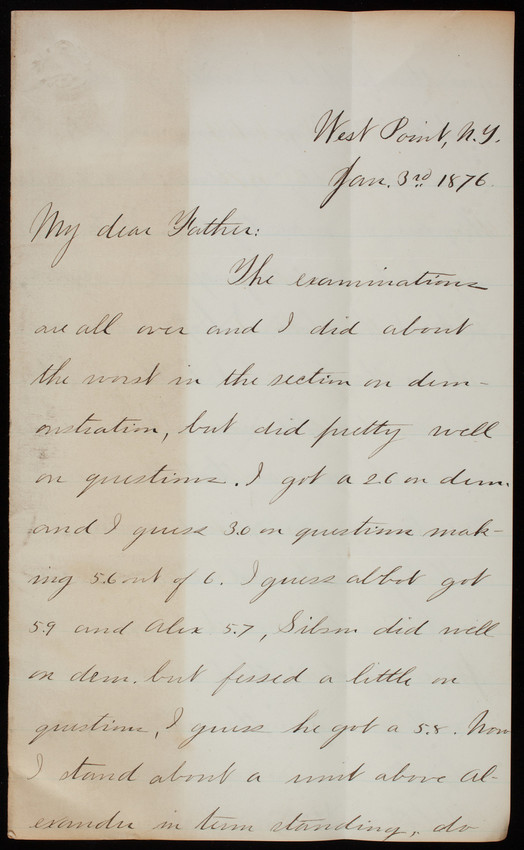 West Point, N.Y.
Jan. 3rd 1876.
My dear Father:
The examinations
are all over and I did about
the worst in the section on dem-
onstration, but did pretty well
on questions. I got a 2.6 on dem.
and I guess 3.0 on questions mak-
ing 5.6 out of 6. I guess abbot got
5.9 and Alex 5.7, Sibson did well
on dem. but fessed a little on
questions, I guess he got a 5.8. Now
I stand about a unit above Al-
exander in term standing, do